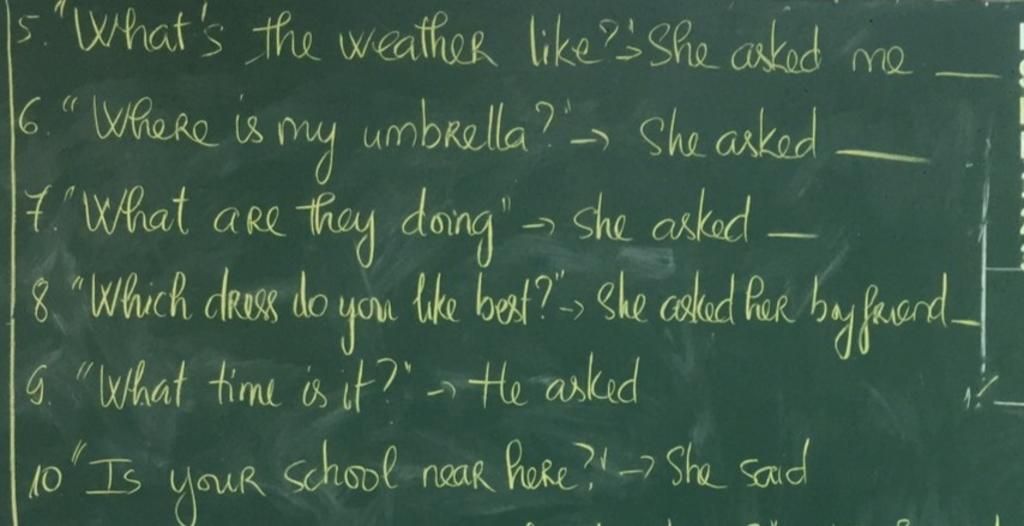 5. "What's the weather like?" → She asked me ___
6. "Where is my umbrella?" → She asked ___
7. "What are they doing" → She asked __
8 "Which dress do you like best?" → She asked her boyfriend _
9. "What time is it?" → He asked
10 "Is your school near here?" → She said